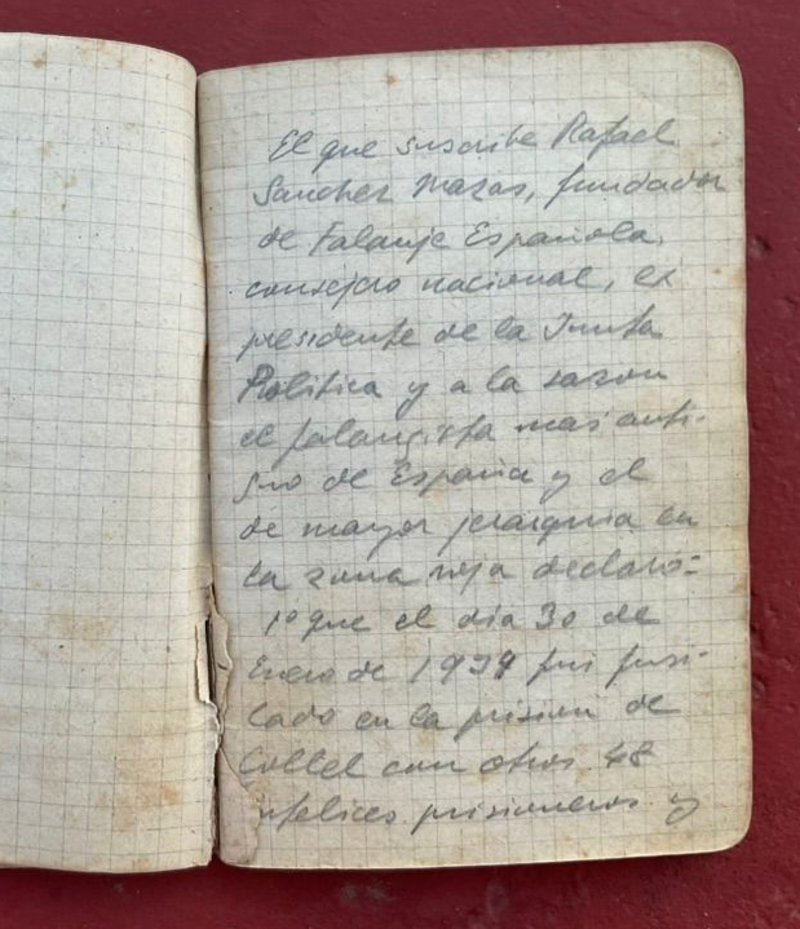 El que suscribe Rafael
Sanchez Mazas, fundador
de Falanje Española,
consejero nacional, ex
presidente de la Junta
Politica y a la sazon
el falangista mas anti-
guo de España y el
de mayor jerarquia en
la zona roja declaro:
1º que el dia 30 de
Enero de 1939 fui fusi-
lado en la prision de
Collel con otros 48
infelices prisioneros y